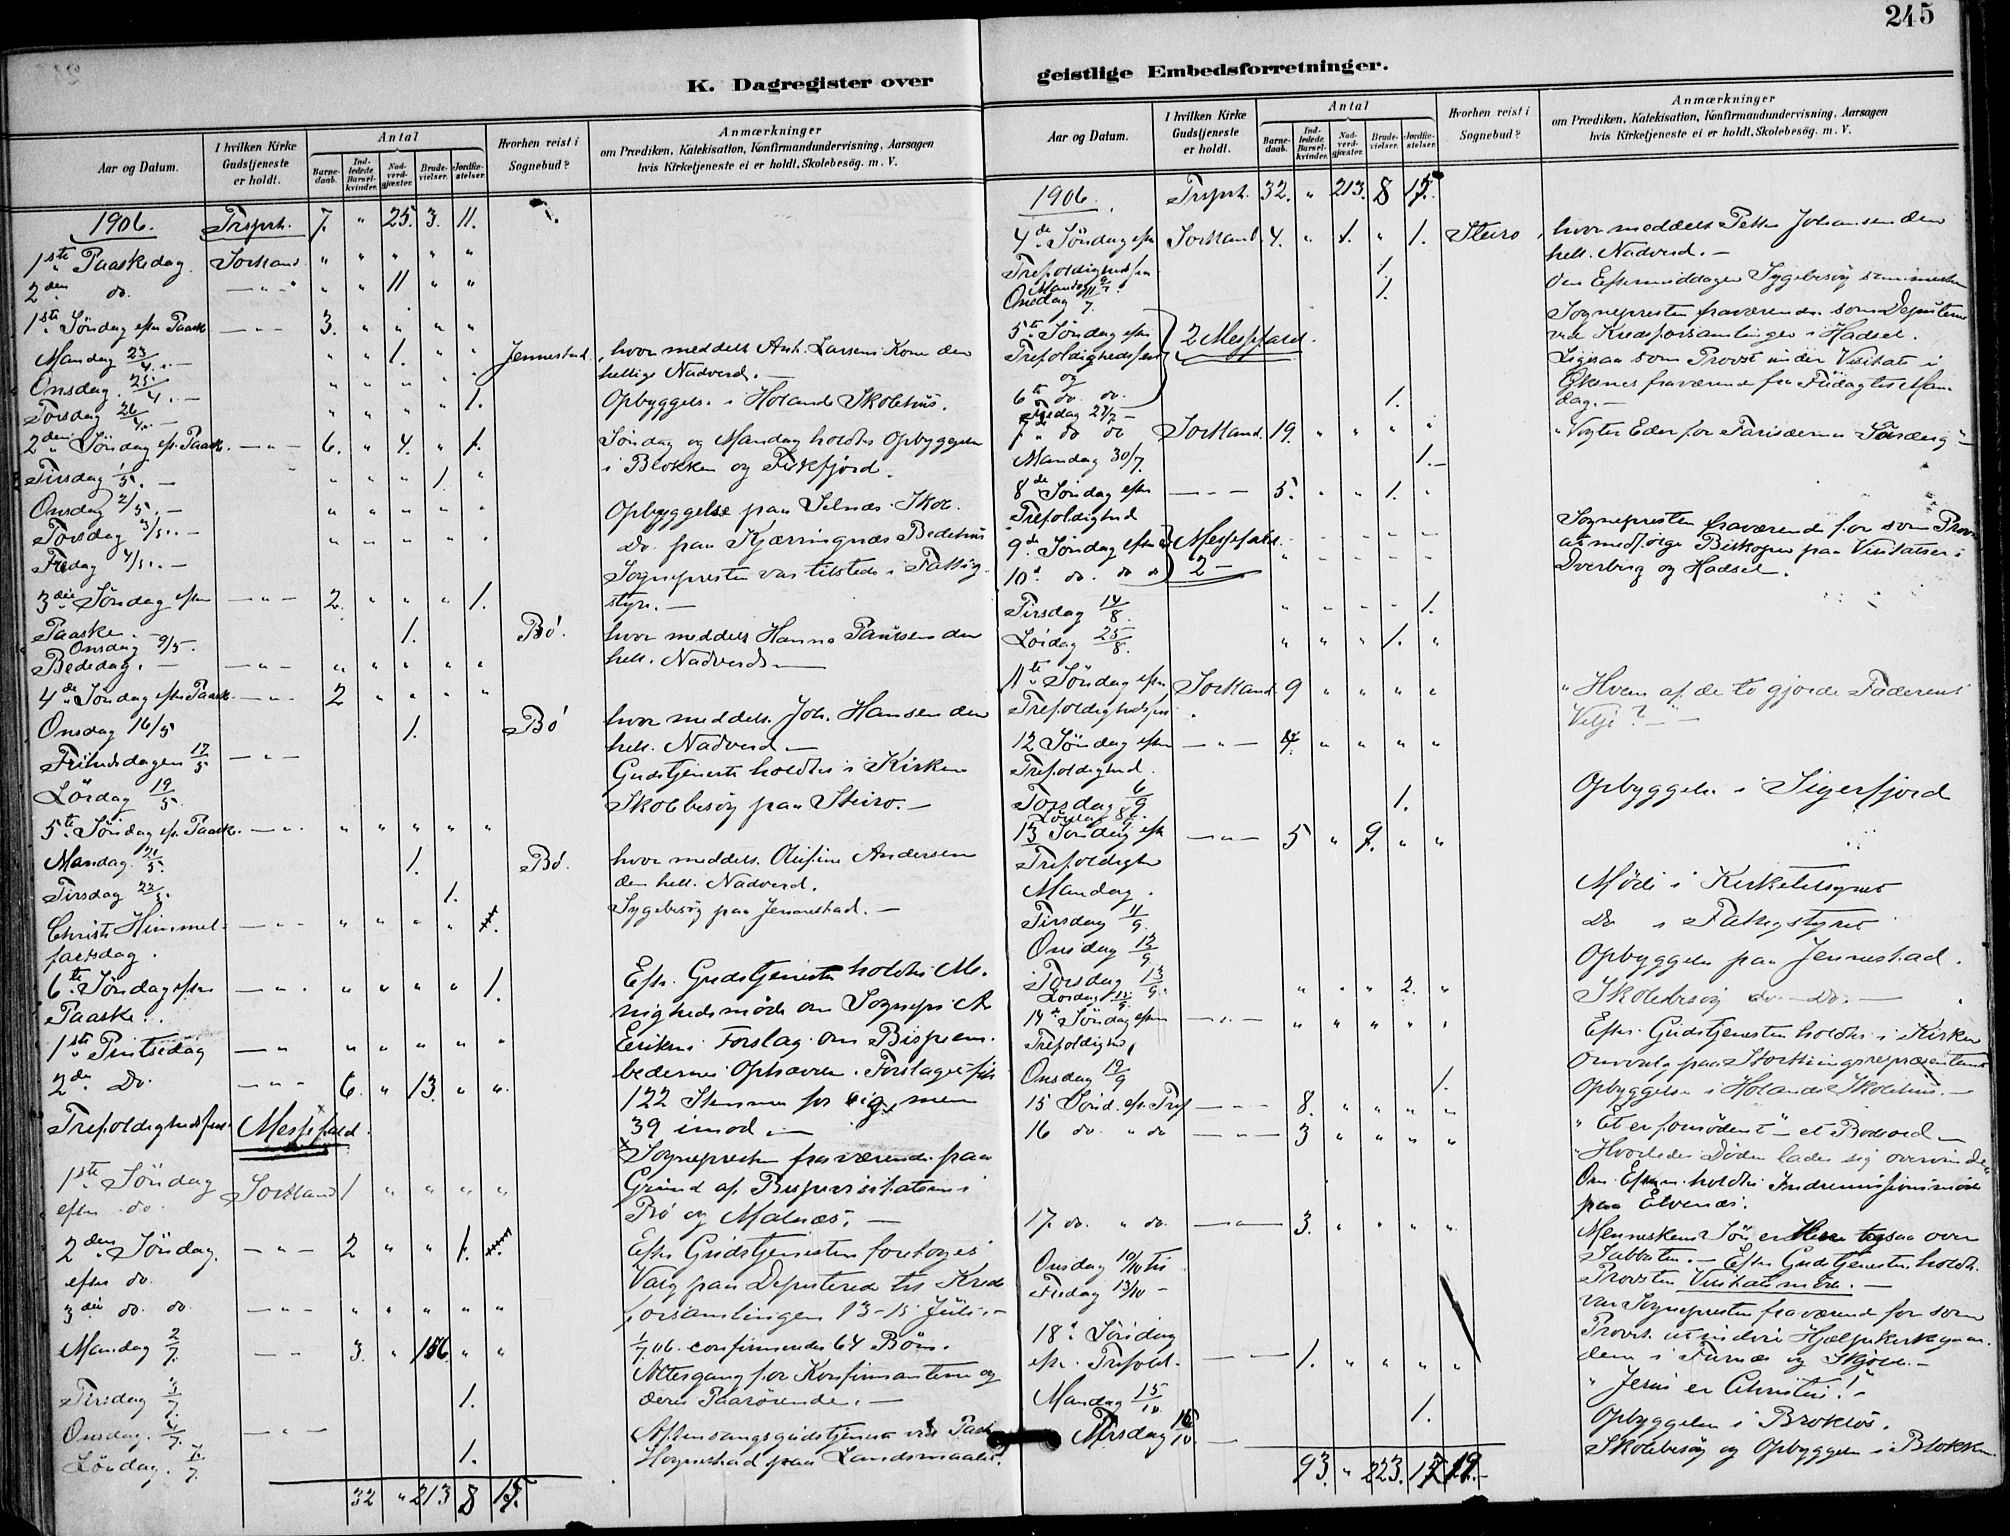 245
K. Dagregister over geistlige Embedsforretninger.
Aar og Datum.
I hvilken Kirke Gudstjeneste er holdt.
Antal
Barnedaab.
Indledede Barselkvinder.
Nadverdgjæster.
Brudevielser.
Jordfæstelser.
Hvorhen reist i Sognebud?
Anmærkninger
om Prædiken, Katekisation, Konfirmandundervisning, Aarsagen
hvis Kirketjeneste ei er holdt, Skolebesög. m. V.
1906. Trsprt. 7. " 25. 3. 11.
1ste Paaskedag Sortland " " " " "
2den do. — " — " " 11 " "
1ste Söndag efter Paask — " — 3. " " " "
Mandag 23/4. — " " 1. " " Jennestad, hvor meddelt Ant. Larsens Kone den
hellige Nadverd. —
Onsdag 25/4. — " " " " "
Torsdag 26/4. — " " " " 1. Opbyggelse i Holands Skolehus.
2den Söndag ef. Paask. — " — 6. " 4. " 1. Söndag og Mandag holdtes Opbyggelse
i Blokken og Fiskfjord.
Tirsdag 1/5. — " " " 1. "
Onsdag 2/5. — " " " " " Opbyggelse paa Selnæs Skole.
Torsdag 3/5. — " " " " " Do. paa Kjærringnæs Bedehus
Fredag 4/5. — Sognepresten var tilstede i Fattig-
styre. —
3die Söndag efter — " — 2. " " " 1.
Paaske.
Onsdag 9/5. 1. Bö. hvor meddelt Hanna Paulsen den
hell. Nadverd —
Bededag. — — " — " " " " "
4de Söndag efter Paask. — " — 2 " " " "
Onsdag 16/5 1. Bö hvor meddelt Joh. Hansen den
hell. Nadverd —
Frihedsdagen 17/5 — " — Gudstjeneste holdtes i Kirken
Lördag 19/5. Skolebesög paa Steiro. —
5te Söndag ef. Paask. — " — " " " " "
Mandag 21/5. 1. Bö. hvor meddelt Olufine Andersen
den hell. Nadverd.
Tirsdag 22/5. 1. Sygebesög paa Jennestad. —
Christi Himmel- — " — " " " "
fartsdag.
6te Söndag efter — " — " " " " 1. Efter Gudstjenesten holdtes Me-
Paaske. nighedsmöde om Sogneps.
Eriksens Forslag om Bispeem-
1ste Pintsedag — " — " " " " "
bedernes Ophævelse. Forslaget fik
2den Do. — " — 6. " 13. " " 122 Stemmer for sig, men
39 imod. —
Trefoldighedsfest Messefald. Sognepresten fraværende paa
Grund af Bispevisitatsen i
Bö og Malnæs. —
1ste Söndag Sortland 1 " " " "
efter do.
2den Söndag — " — 2 " " 1. Efter Gudstjenesten foretoges
efter do. Valg paa Deputerede til Kreds-
forsamlingen 13-15 Juli. —
3die do. do. — " — " " " " "
Mandag 2/7. — " — 3. " 156 " " 1/7 06. confirmeredes 64 Börn.
Altergang for Konfirmanterne og
Tirsdag 3/7. 1. deres Paarörende. —
Onsdag 4/7. — " — Aftensangsgudstjeneste ved
Lördag 7/7. 1. Hognestad paa Landsmaalet.
32 " 213 8 15.
1906. Trsprt. 32. " 213. 8 15.
4de Söndag efter Sortland 4. " 1. " 1. Steiro, hvor meddelt Petter Johansen den
Trefoldighedsfest 1. hell. Nadverd. —
Mandag 9/7. Om Eftermiddagen Sygebesög sammesteds
Onsdag 11/7. 1.
5te Söndag efter Sognepresten fraværende som Deputeret
Trefoldighedsfest 2 Messefald. ved Kredsforsamlingen i Hadsel.
og Ligesaa som Provst under Visitats i
6te do. do. 1. Öksnes fraværende fra Fredag til Man-
dag. —
Fredag 27/7 —
7de do do Sortland. 19. " " " " "Vogter Eder for Farisæernes Surdeig" —
Mandag 30/7. 1. —
8de Söndag efter — " — 5. " " 1. "
Trefoldighed
9de Söndag efter Messefald. Sognepresten fraværende for som Provst
10de do. do do 2 — at medfölge Biskopen paa Visitatser i
Dverberg og Hadsel.
Tirsdag 14/8. " " " " 1.
Lördag 25/8. " " " 1. "
11te Söndag efter Sortland 9 " " " " "Hvem af de to gjorde Faderens
Trefoldighedsfest Vilje?" —
12 Söndag efter — " — 4. " " " "
Trefoldighed.
Torsdag 6/9 1. Opbyggelse i Sigerfjord
Lördag 8/9.
13 Söndag eft — " — 5 " 9. " "
Trefoldigh
Mandag. Möde i Kirketilsynet
Tirsdag 11/9. Do i Fattigstyret
Onsdag 12/9 Opbyggelse paa Jennestad.
Torsdag 13/9. " " " 2. " Skolebesög do. Do. —
Lördag 15/9.
14de Söndag efter — " — " " " " " Efter Gudstjenesten holdtes i Kirken
Trefoldighed Omvalg paa Stortingsrepræsentant
Onsdag 19/9 1. Opbyggelse i Holands Skolehus. —
15 Sönd. ef. Tref — " — 8. " " " " "Et er fornödent" — et Bodsord —
16 do. " do — " — 3 " " " " "Hvorledes Döden lader sig overvinde"
Om Efterm. holdtes Indremissionsmöde
paa Elvenæs.
17. do. " do. — " — 3. " " " " Menneskens Sön er Herre ogsaa over
Sabbaten. — Efter Gudstjenesten holdt
Provsten Visitatsmöde. —
Onsdag 10/10 til Var Sognepresten fraværende for som
Fredag 12/10 — Provst at indvie Hjælpekirkegaar-
dene i Furnæs og Skjold. —
18de Söndag — " — 1. " " " "
eft. Trefold. "Jesus er Christus!" —
Mandag 15/10 1. Opbyggelse i Broklös.
Tirsdag 16/10. — Skolebesög og Opbyggelse i Blokken
93. " 223. 17 19. —